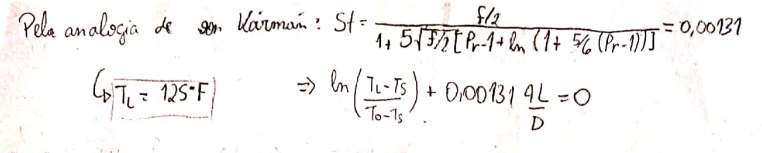 Pela analogia de von Kármán: St = f/2 / 1 + 5√f/2 [Pr-1 + ln (1 + 5/6 (Pr-1))] = 0,00131
↳ T_L = 125°F ⇒ ln (T_L - T_S / T_0 - T_S) + 0,00131 4L/D = 0